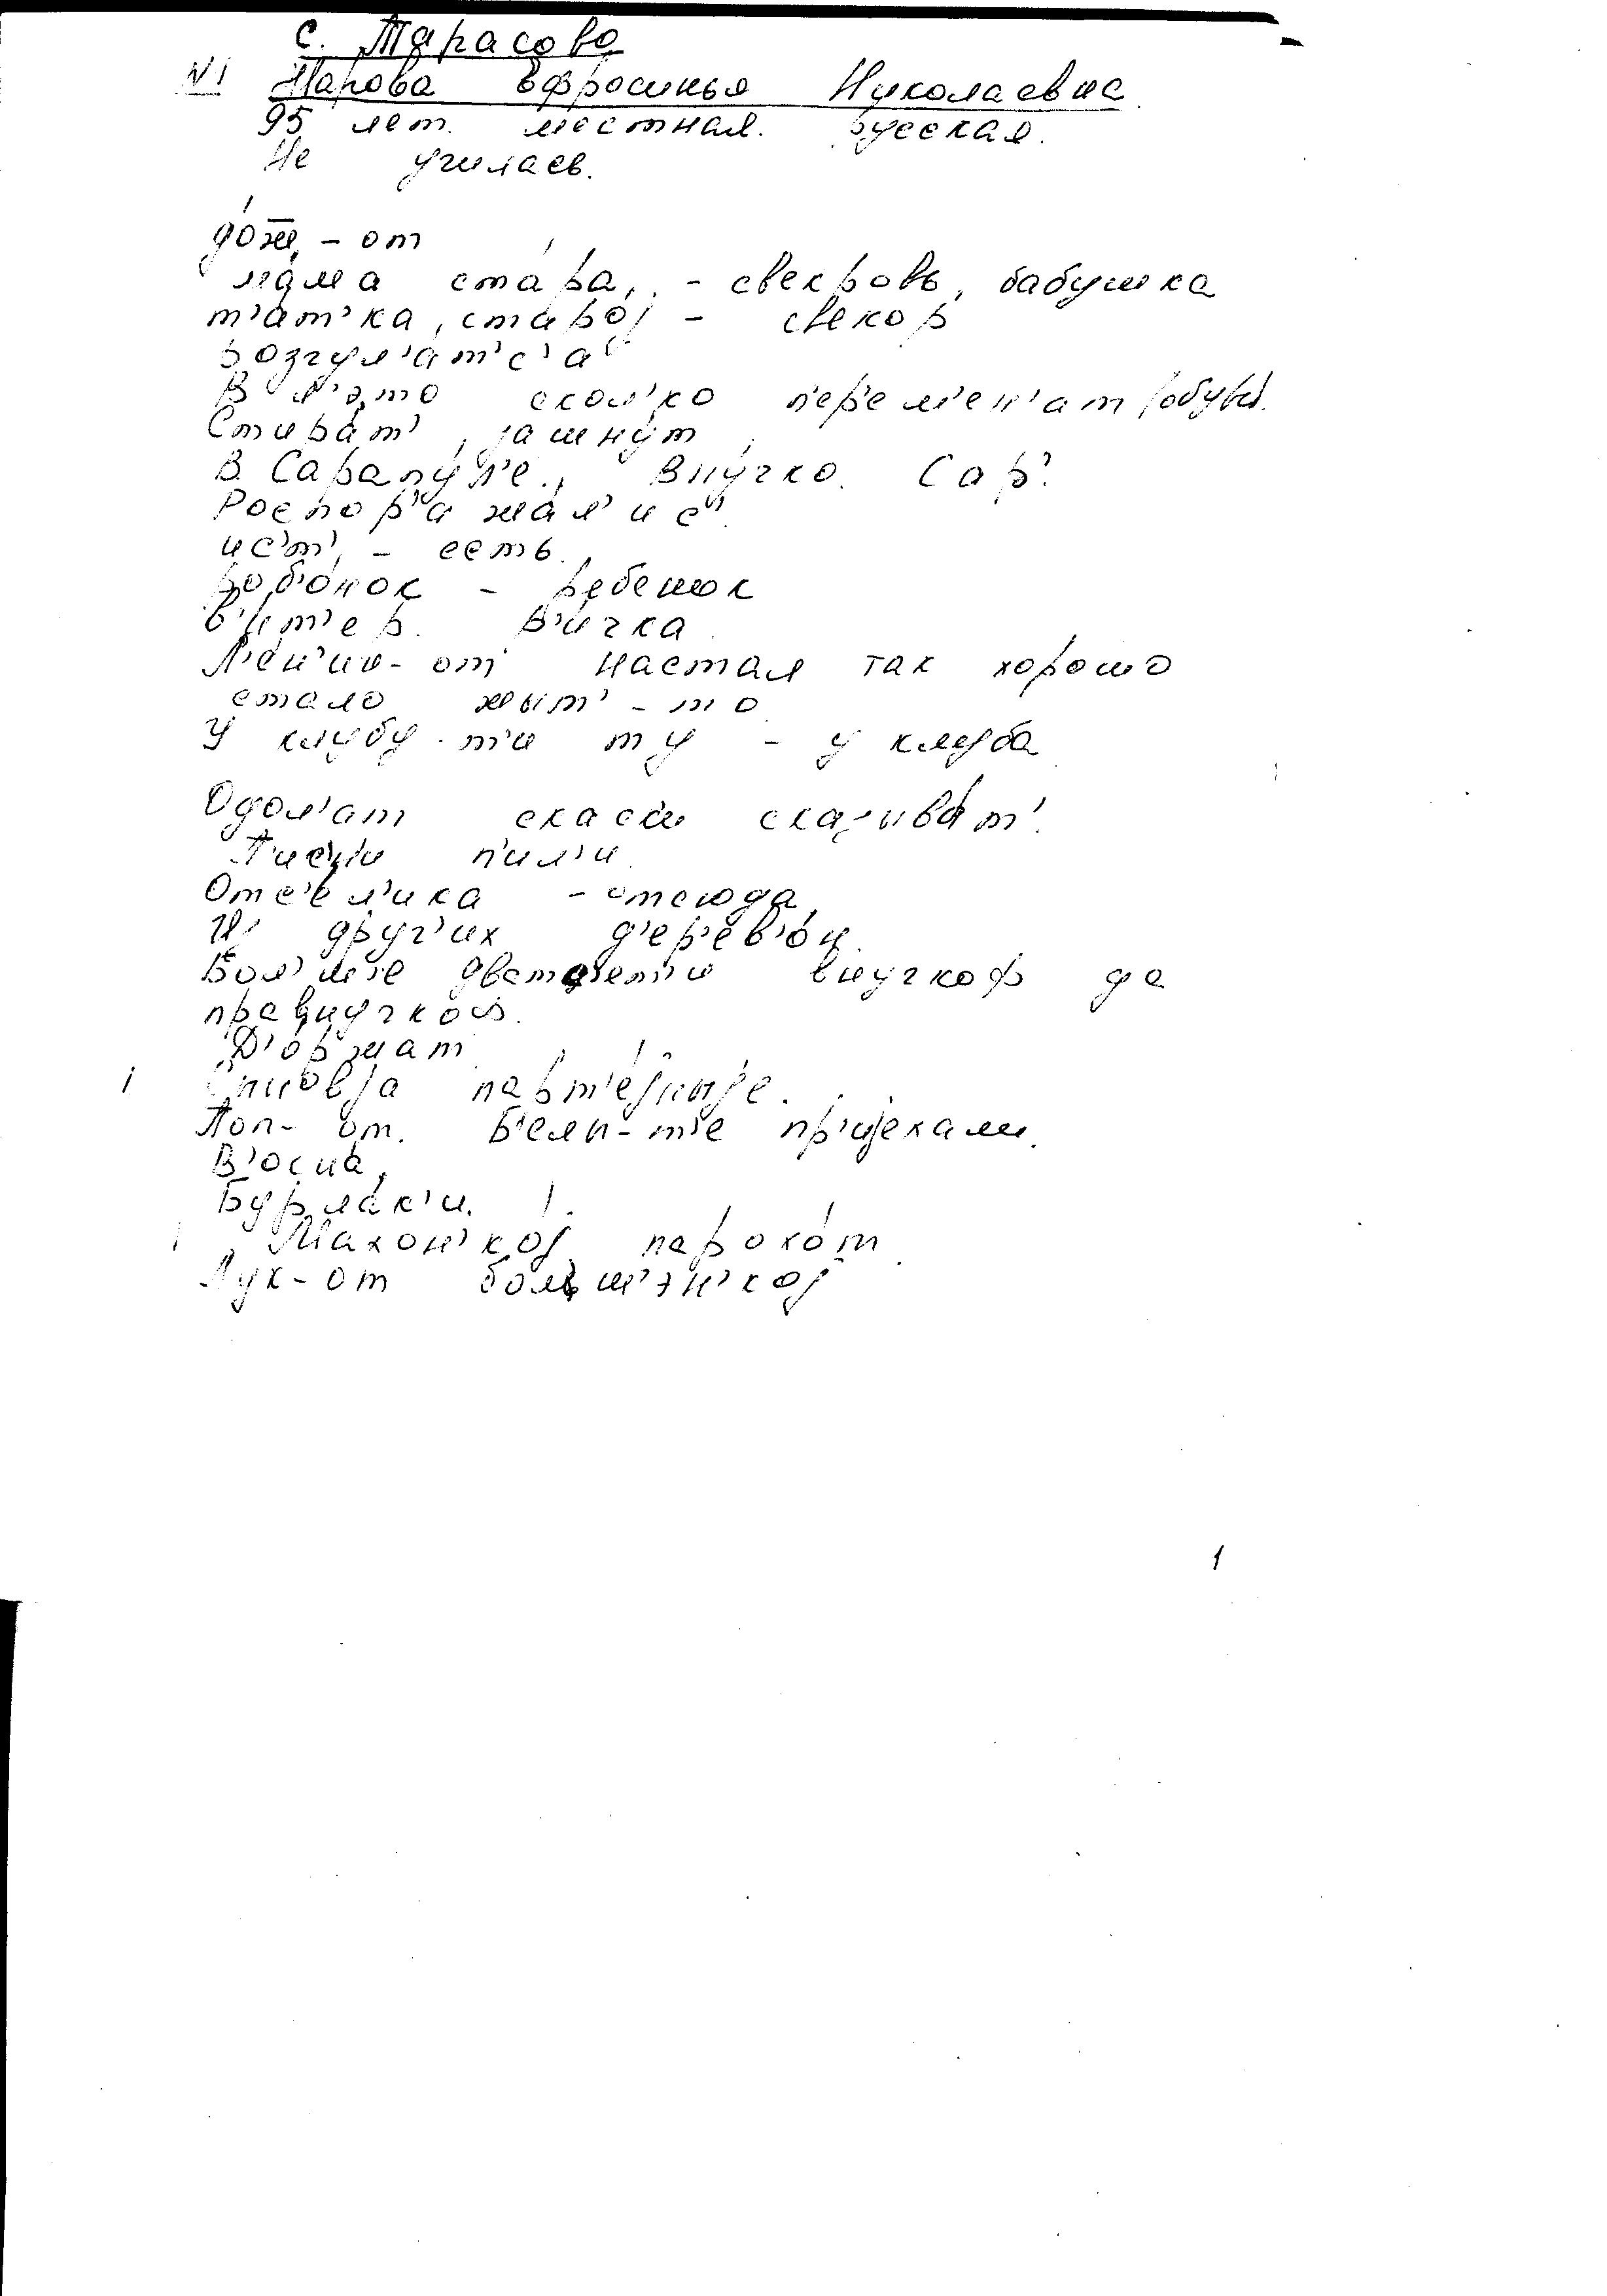 с. Тарасово
N1 Шарова Ефросинья Николаевна
95 лет. местная. русская.
Не училась.
дож̅-от
мама стара, - свекровь, бабушка
т'ат'ка, старој - свекор
розгул'ат'с'а
В л'это скол'ко п'ер'ем'ен'ат (обувь).
Стира́т', јашну́т
В Сарапу́л'е, внучко. Сар.
Роспор'ажа́л'ис'
ис'т' - есть
роб'о́нок - ребенок
в'ит'ер. В'и́чка
Л'е́н'ин-от настал так хорошо
стало жыт'-то
У клубу-т'и ту - у клуба
Одол'ат скаски ска́зыват'.
П'ис'н'и п'ил'и
Отс'е́л'ика - отсюда
Из друг'их д'ер'ев'о́н
Бол'ше двацет'и внучкоф да
правнучкоф.
Д'о́ржат
Сыновја парт'е́јныјe.
Поп-от. Белы-т'е пр'ијехали.
В'осна́,
Бурлак'и.
Махон'кој парохо́т
Лук-от бол'ш'эн'кој
1